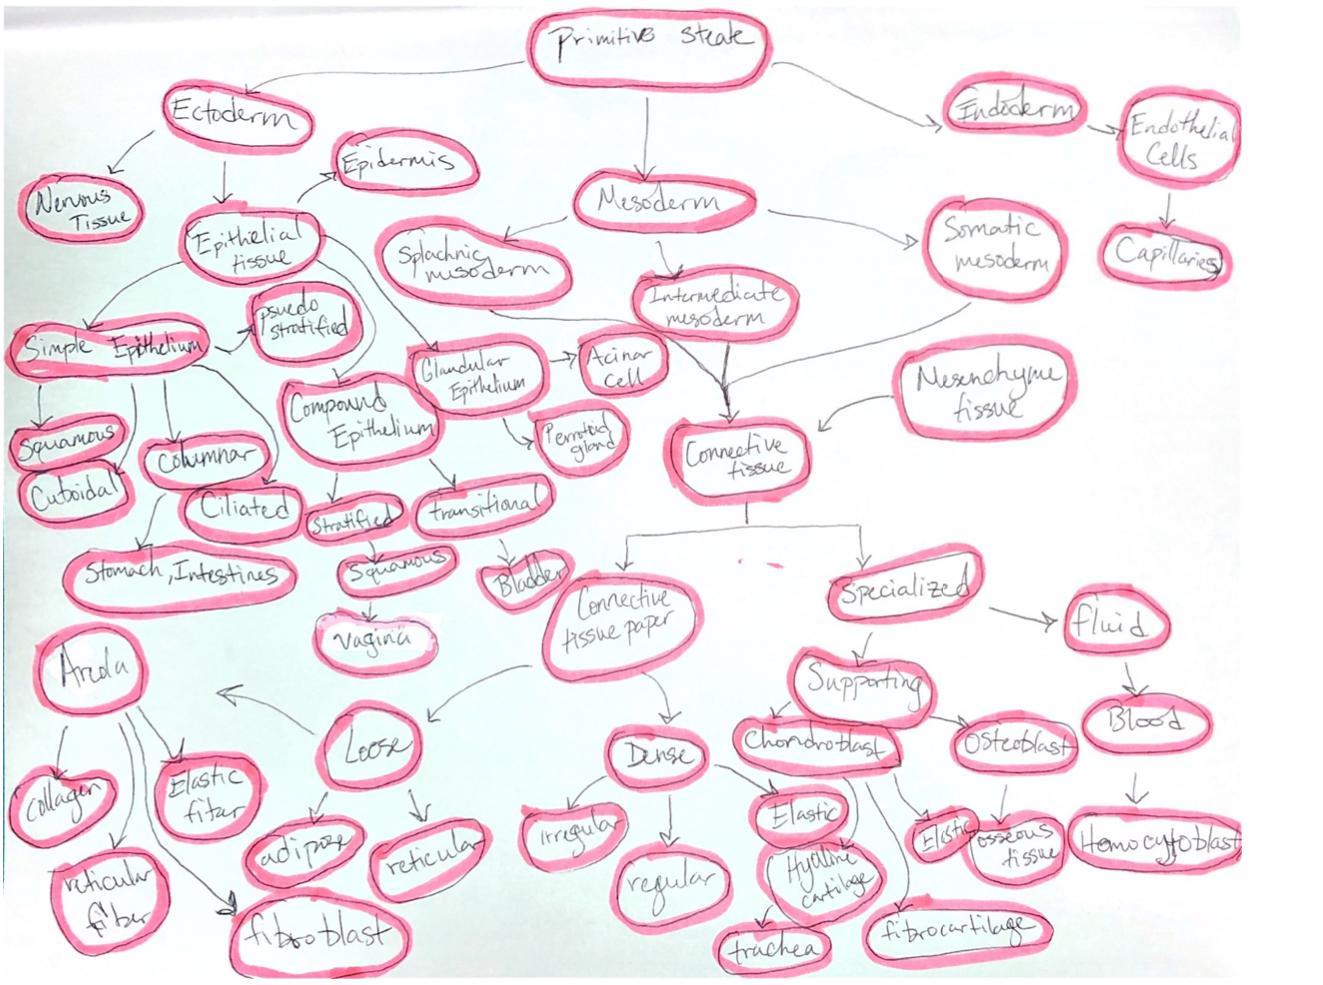 Primitive Steate
Ectoderm
Endoderm
Endothelial
Cells
Epidermis
Nervous
Tissue
Mesoderm
Epithelial
tissue
Splachnic
mesoderm
Somatic
mesoderm
Capillaries
Intermediate
mesoderm
psuedo
stratified
Simple Epithelium
Glandular
Epithelium
Acinar
Cell
Mesenchyme
tissue
Compound
Epithelium
Perrotoid
gland
Connective
tissue
Squamous
Cuboidal
Columnar
Ciliated
Stratified
transitional
Stomach, Intestines
Squamous
Bladder
Connective
tissue paper
Specialized
fluid
vagina
Areola
Supporting
Blood
Loose
Dense
Chondroblast
Osteoblast
collagen
Elastic
fibar
adipose
reticular
irregular
regular
Elastic
Hyaline
cartilage
Elastic
osseous
tissue
Homocytoblast
reticular
fiber
fibroblast
trachea
fibrocartilage